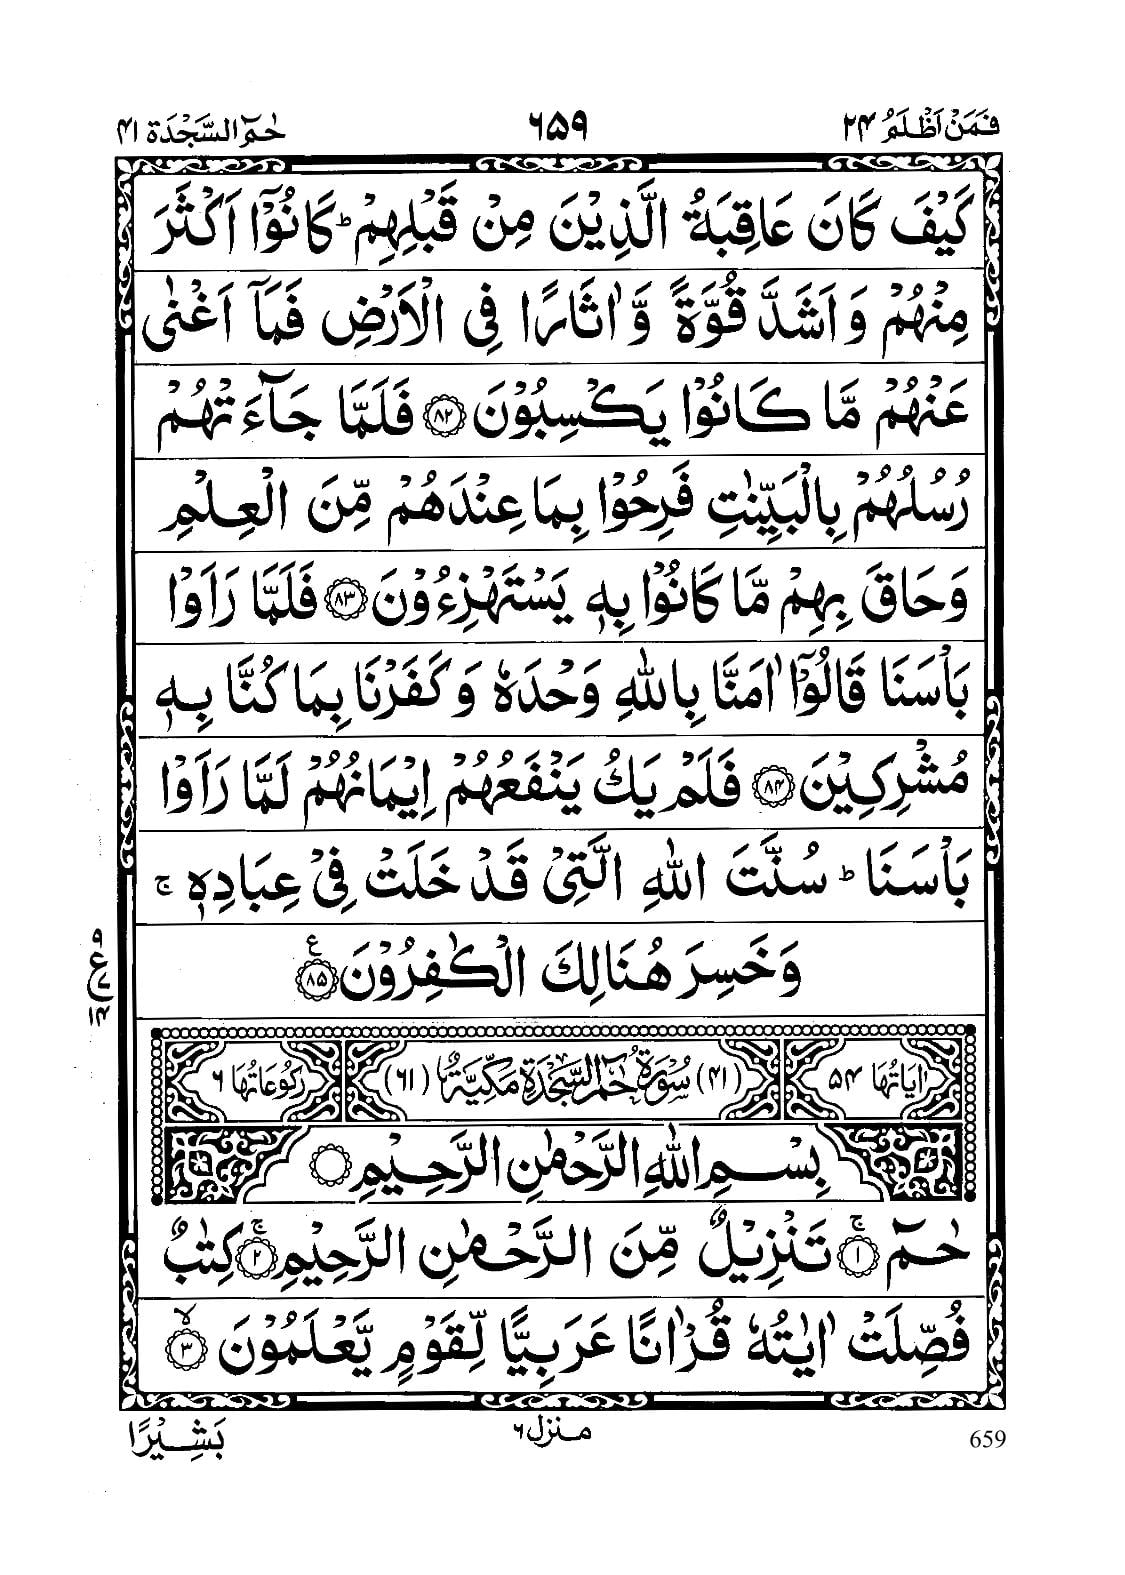 فَمَنْ اَظْلَمُ ۲۴ ۶۵۹ حٰمٓ السَّجْدَة ۴۱
كَيْفَ كَانَ عَاقِبَةُ الَّذِيْنَ مِنْ قَبْلِهِمْ ؕ كَانُوْۤا اَكْثَرَ
مِنْهُمْ وَ اَشَدَّ قُوَّةً وَّ اٰثَارًا فِي الْاَرْضِ فَمَاۤ اَغْنٰى
عَنْهُمْ مَّا كَانُوْا يَكْسِبُوْنَ ۸۲ فَلَمَّا جَآءَتْهُمْ
رُسُلُهُمْ بِالْبَيِّنٰتِ فَرِحُوْا بِمَا عِنْدَهُمْ مِّنَ الْعِلْمِ
وَ حَاقَ بِهِمْ مَّا كَانُوْا بِهٖ يَسْتَهْزِءُوْنَ ۸۳ فَلَمَّا رَاَوْا
بَاْسَنَا قَالُوْۤا اٰمَنَّا بِاللّٰهِ وَحْدَهٗ وَ كَفَرْنَا بِمَا كُنَّا بِهٖ
مُشْرِكِيْنَ ۸۴ فَلَمْ يَكُ يَنْفَعُهُمْ اِيْمَانُهُمْ لَمَّا رَاَوْا
بَاْسَنَا ؕ سُنَّتَ اللّٰهِ الَّتِيْ قَدْ خَلَتْ فِيْ عِبَادِهٖ ۚ
وَ خَسِرَ هُنَالِكَ الْكٰفِرُوْنَ ۸۵ ع
۹
ع
۱۴
اٰيَاتُهَا ۵۴ (۴۱) سُوْرَةُ حٰمٓ السَّجْدَةِ مَكِّيَّةٌ (۶۱) رُكُوْعَاتُهَا ۶
بِسْمِ اللّٰهِ الرَّحْمٰنِ الرَّحِيْمِ
حٰمٓ ۱ ۚ تَنْزِيْلٌ مِّنَ الرَّحْمٰنِ الرَّحِيْمِ ۲ ۚ كِتٰبٌ
فُصِّلَتْ اٰيٰتُهٗ قُرْاٰنًا عَرَبِيًّا لِّقَوْمٍ يَّعْلَمُوْنَ ۳ ۙ
بَشِيْرًا منزل ۶ 659